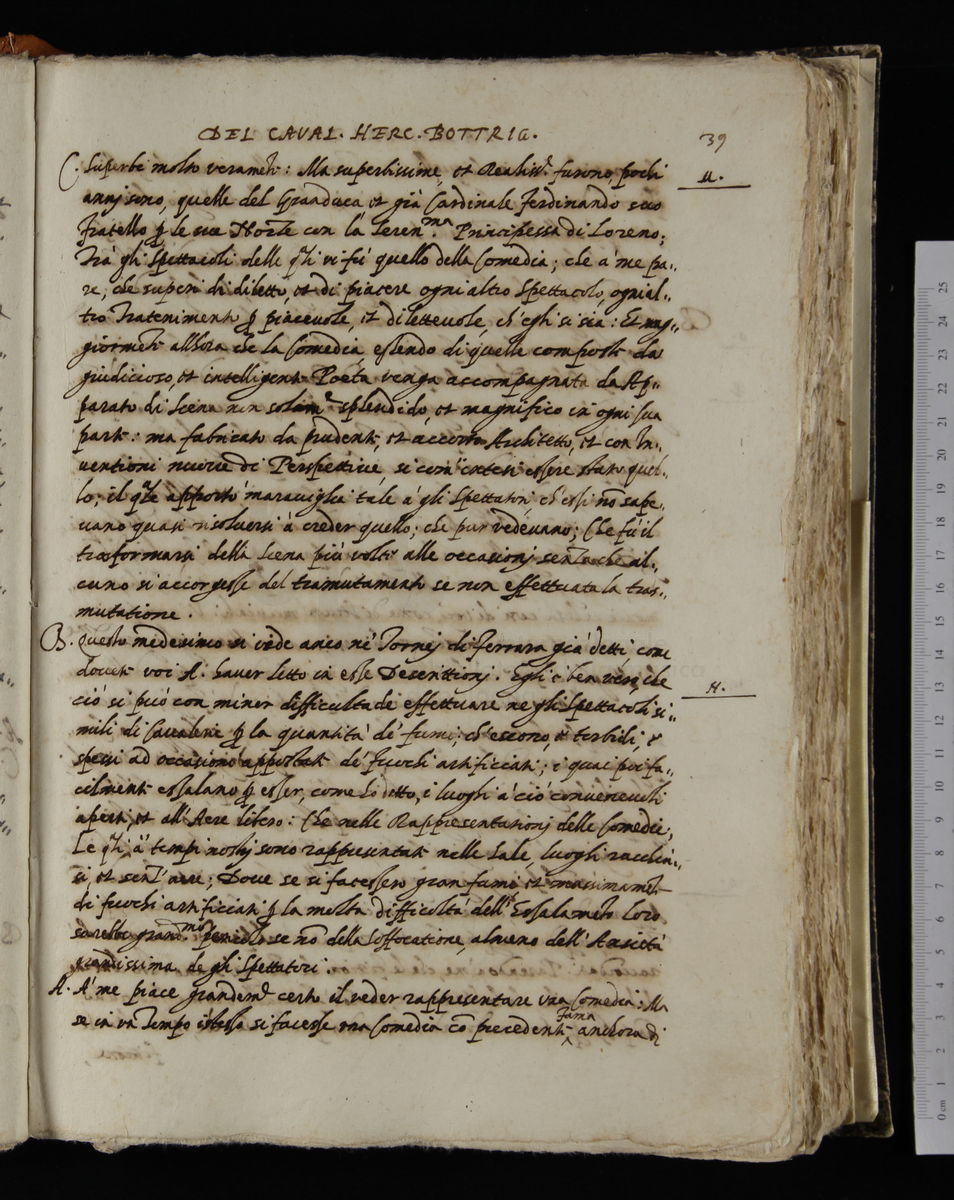 DEL CAVAL. HERC. BOTTRIG.
39
C. Superbe molto veramẽte: Ma superbissime, et Realiss.e furono, pochi
M.
annj sono, quelle del Granduca et già Cardinale Ferdinando suo
fratello ꝑ le sue Nozze con la Seren.ma Principessa di Loreno;
Trà gli Spettacoli delle q̃li vi fú quello della Comedia; che à me pa..
re, che superi di diletto, et di piacere ogni altro Spettacolo, ogni al..
tro Tratenimento ꝑ piacevole, et dilettevole, ch'egli si sia: Et mag..
giormẽte allhora che la Comedia, essendo di quelle composte da
giudicioso, et intelligente Poeta venga accompagnata da Ap..
parato di Scena non solam.e splendido, et magnifico in ogni sua
parte: ma fabricato da prudente, et accorto Architetto, et con In..
ventioni nuove di Perspettive, si com' intesi essere stato quel..
lo; il q̃le apportò maraviglia tale à gli Spettatori, ch'essi nõ sape..
uano quasi risoluersi à creder quello; che pur vedevano; Che fù il
trasformarsi della Scena più volte alle occasionj senza che al..
cuno si accorgesse del tramutamento se non effettuata la tras..
mutatione.
B. Questo medesimo si vede anco ne' Tornej di Ferrara già detti come
dovete voi A. haver letto in esse Descrittionj. Egli è ben vero, che
H.
ciò si può con minor difficultà de effettuare ne gli Spettacoli si..
mili di Cavalerie ꝑ la quantità de' fumi; ch'escono, è torbidi, e
spessi ad occasione apportati de' fuochi artificiati; i quai poi fa..
cilmente essalano ꝑ esser, come hò detto, i luoghi à ciò convenevoli
aperti, et all'Aere libero: Che nelle Rappresentationj delle Comedie;
Le q̃li à tempi nostrj sono rappresentate nelle Sale, luoghi racchiu..
si, et senz' aere; Dove se si facessero gran fumi et massimamẽte
di fuochi artificiati ꝑ la molta difficoltà dell'Essalamẽto loro
sarebbe grand.mo pericolo se nõ della soffocatione, almeno dell'Ansietà
grandissima de gli Spettatori.
A. A' me piace grandem.e certo il veder rappresentare una Comedia: Ma
se in un Tempo istesso si facesse una Comedia cõ precedente fama anchora di